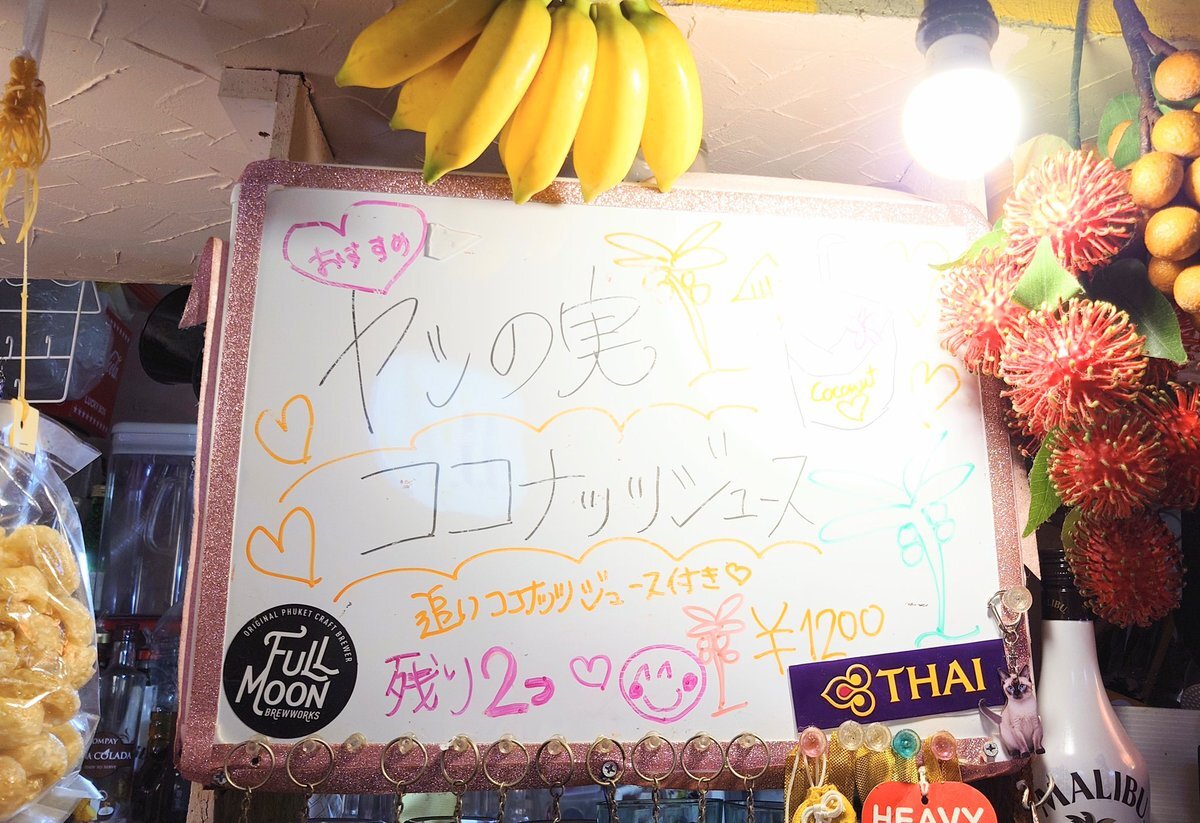 おすすめ
ヤシの実
Coconut
ココナッツジュース
追いココナッツジュース付き
残り2つ
¥1200
ORIGINAL PHUKET CRAFT BREWER
FULL MOON
BREWWORKS
THAI
HEAVY
MALIBU